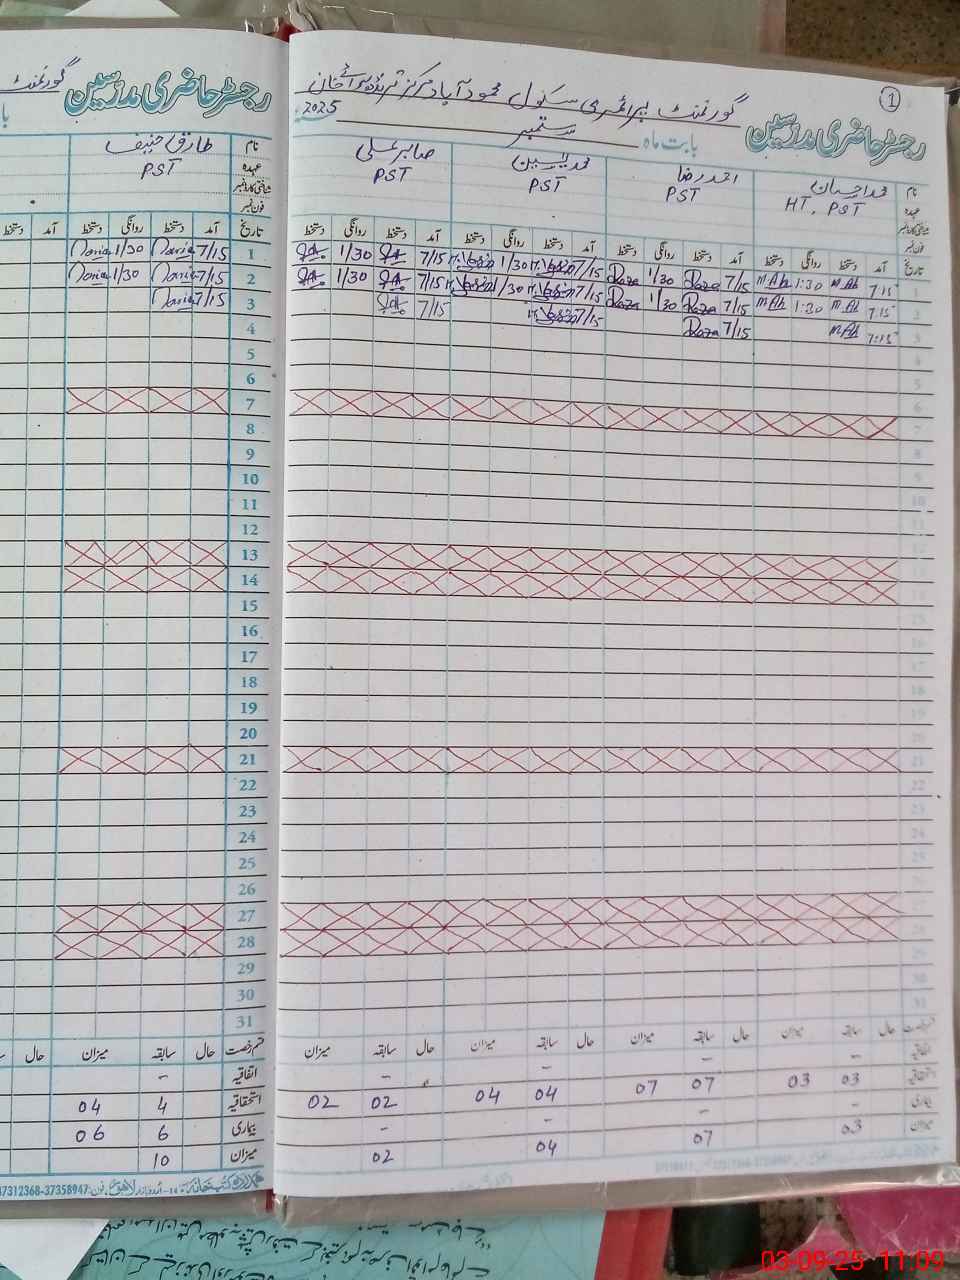 1
گورنمنٹ پرائمری سکول محمود آباد مرکز
رجسٹر حاضری مدرسین
بابت ماہ ستمبر 2025
نام محمد احسان احمد رضا محمد یٰسین صابر علی
عہدہ HT, PST PST PST PST
شناختی کارڈ نمبر
فون نمبر
تاریخ آمد دستخط روانگی دستخط آمد دستخط روانگی دستخط آمد دستخط روانگی دستخط آمد دستخط روانگی دستخط
1 7:15 M Ah 1:30 M Ah 7/15 Raza 1/30 Raza 7/15 M. Yasin 1/30 M. Yasin 7/15 1/30
2 7:15 M Ah 1:30 M Ah 7/15 Raza 1/30 Raza 7/15 M. Yasin 1/30 M. Yasin 7/15 1/30
3 7:15 M Ah 7/15 Raza 7/15 M. Yasin 7/15
4
5
6
7
8
9
10
11
12
13
14
15
16
17
18
19
20
21
22
23
24
25
26
27
28
29
30
31
قسم رخصت حال سابقہ میزان حال سابقہ میزان حال سابقہ میزان حال سابقہ میزان
اتفاقیہ - - - -
استحقاقیہ 03 03 07 07 04 04 02 02
بیماری - - - -
میزان 03 07 04 02
گورنمنٹ
رجسٹر حاضری مدرسین
نام طارق حنیف
عہدہ PST
شناختی کارڈ نمبر
فون نمبر
تاریخ آمد دستخط روانگی دستخط آمد دستخط
1 7/15 1/30
2 7/15 1/30
3 7/15
4
5
6
7
8
9
10
11
12
13
14
15
16
17
18
19
20
21
22
23
24
25
26
27
28
29
30
31
قسم رخصت حال سابقہ میزان حال
اتفاقیہ -
استحقاقیہ 4 04
بیماری 6 06
میزان 10
اردو بازار لاہور فون: 37358947-37312368
03-09-25 11:09